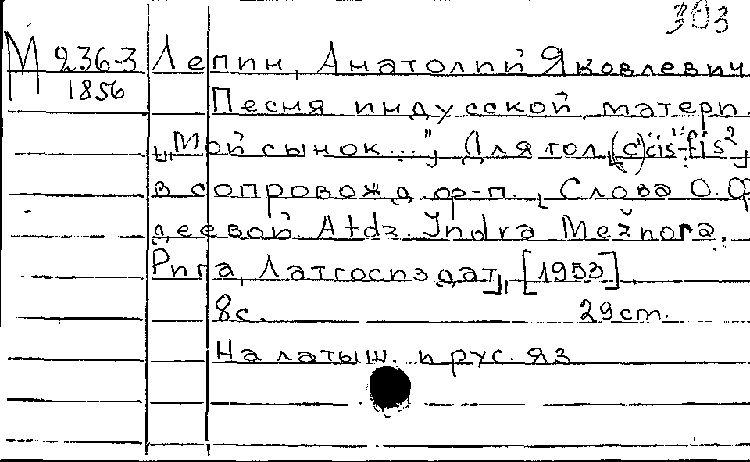 303
М 236-3 Лепин, Анатолий Яковлевич
1856
Песня индусской матери
„Мой сынок..." Для гол. (c') cis'-fis²
в сопровожд. ф-п. Слова О. Фа
деевой. Atdz. Indra Mežnora.
Рига, Латгосиздат, [1953]
8с. 29cm.
На латыш. и рус. яз